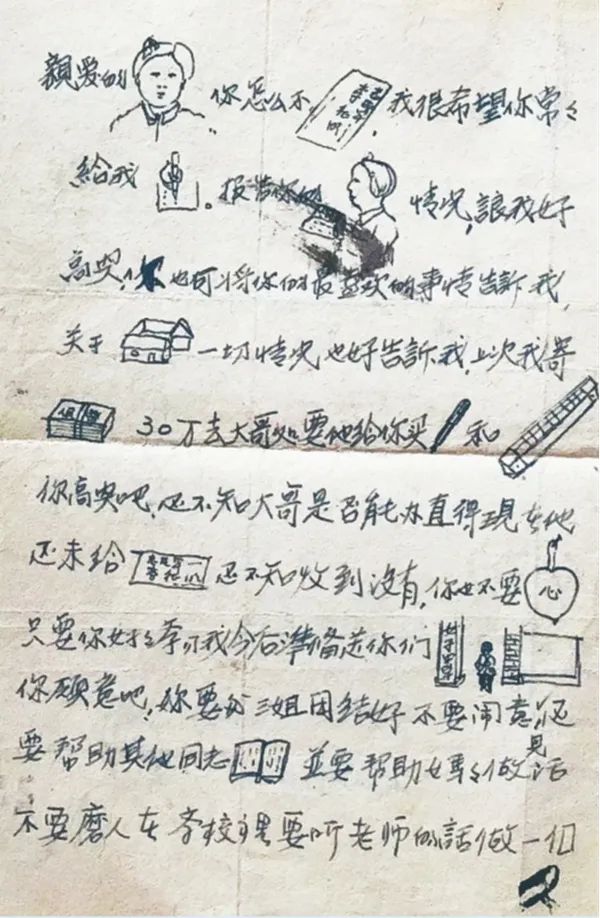 親爱的 你怎么不 ,我很希望你常々
給我 。报告你的 情况,讓我好
高兴,你也可将你的最喜欢的事情告訴我,
关于 一切情况也好告訴我,上次我寄
30万去大哥处要他给你买 和
你高兴吧,还不知大哥是否能办直得現在他
还未给 还不知收到没有,你也不要 心
只要你好々学习我今后準备送你们
你願意吧,妳要与三姐团结好不要闹意见还
要帮助其他同志 並要帮助妈々做 活
不要磨人在学校里要听老师的話做一個